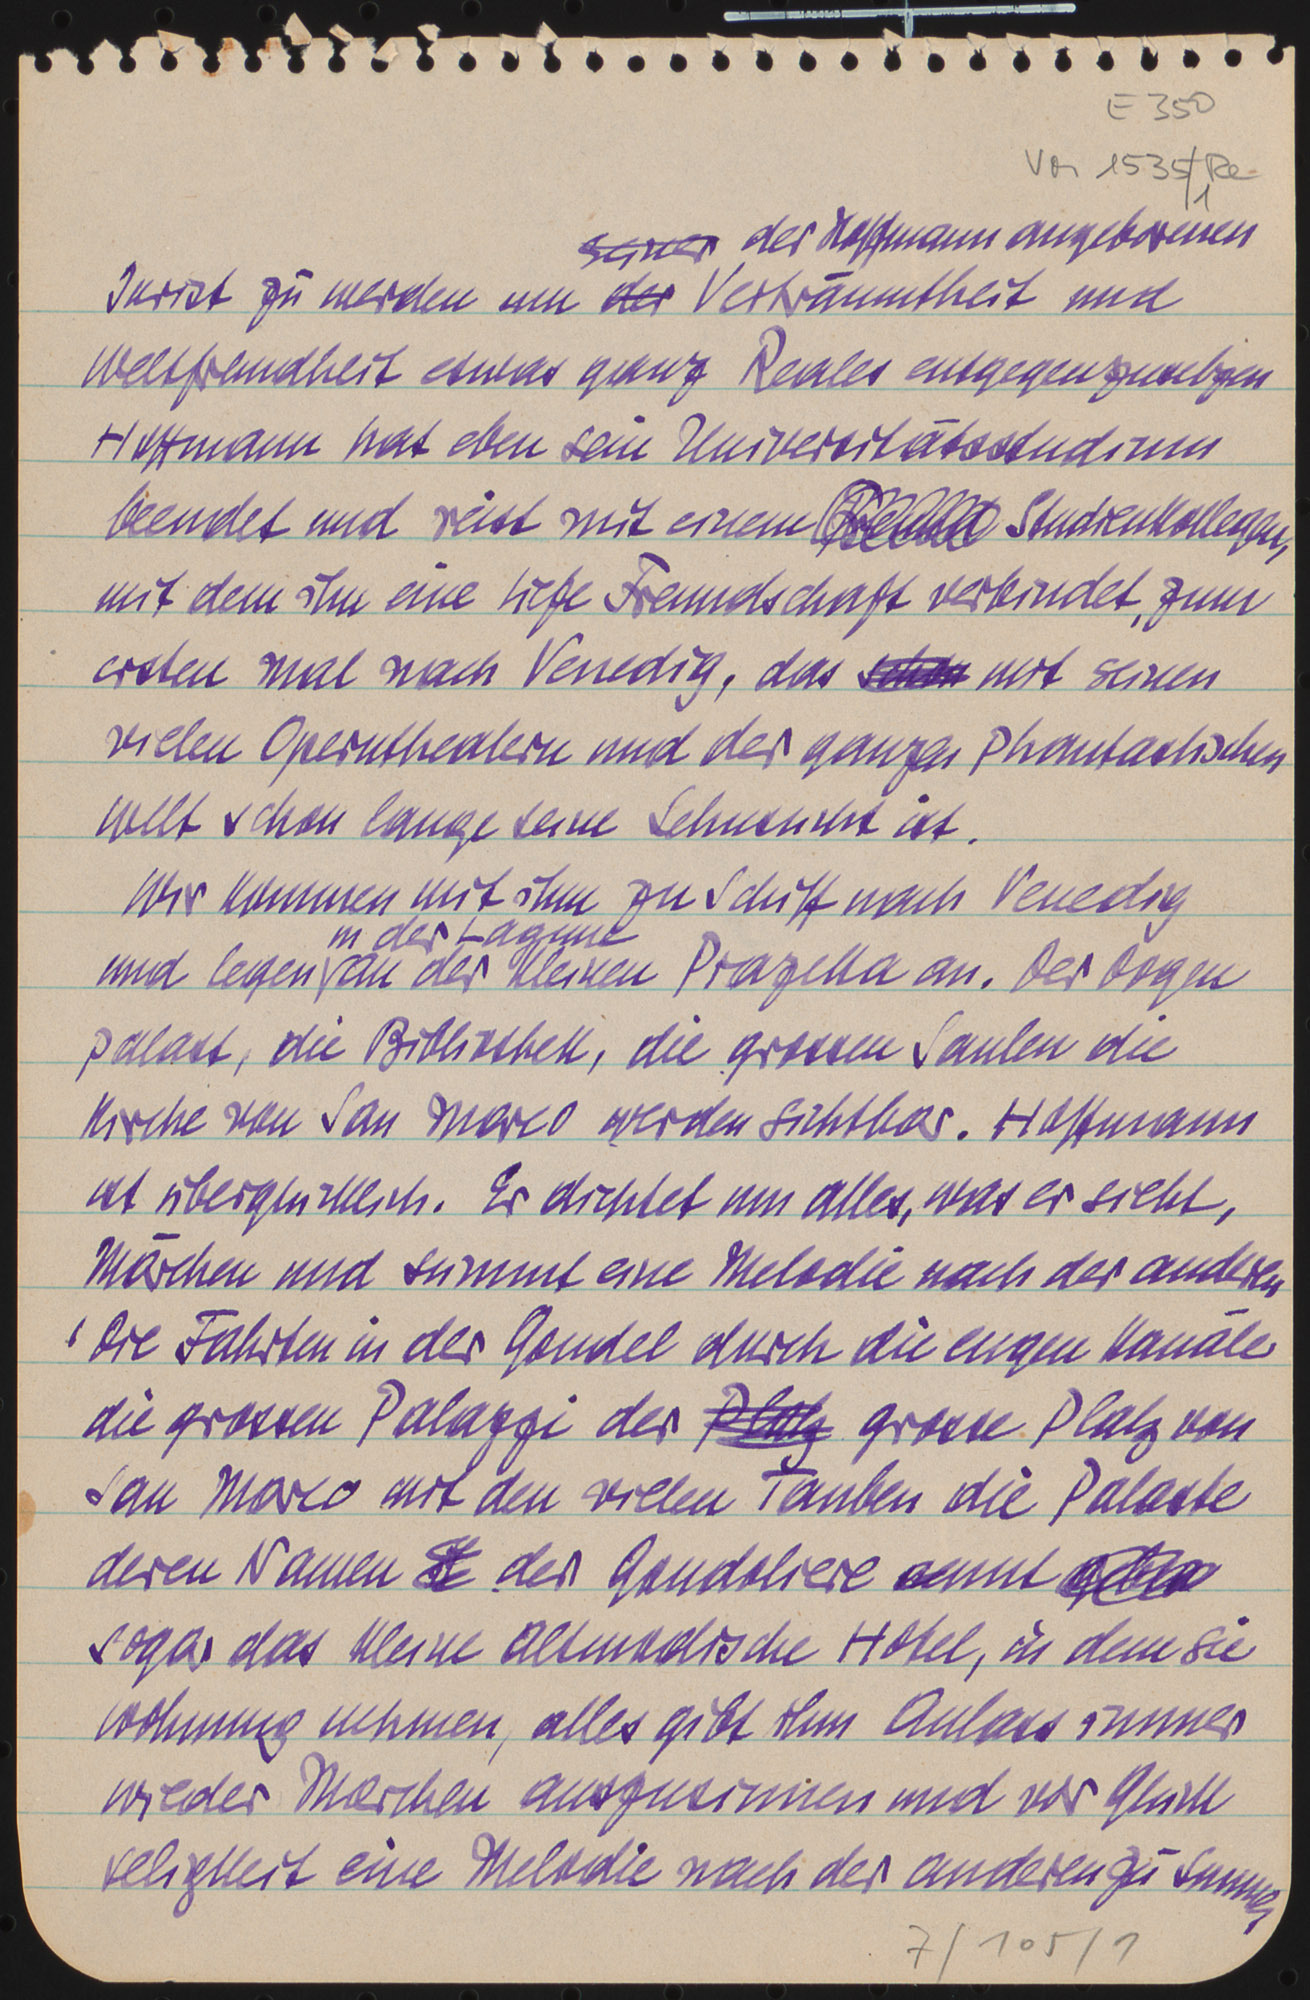 E 350
Von 1535/Re
1
seiner der Hoffmann angeborenen
Jurist zu werden um der Verträumtheit und
Weltfremdheit etwas ganz Reales entgegenzusetzen
Hoffmann hat eben sein Universitätsstudium
beendet und reist mit einem Freund Studienkollegen,
mit dem ihn eine tiefe Freundschaft verbindet, zum
ersten mal nach Venedig, das schon mit seinen
vielen Operntheatern und der ganzen phantastischen
Welt schon lange seine Sehnsucht ist.
Wir kommen mit ihm zu Schiff nach Venedig
in der Lagune
und legen an der kleinen Piazetta an. Der Dogen
palast, die Bibliothek, die grossen Saulen die
Kirche von San Marco werden sichtbar. Hoffmann
ist überglücklich. Er dichtet um alles, was er sieht,
Märchen und summt eine Melodie nach der anderen
Die Fahrten in der Gondel durch die engen Kanäle
die grossen Palazzi der Platz grosse Platz von
San Marco mit den vielen Tauben die Palaste
deren Namen der Gondoliere nennt
sogar das kleine altmodische Hotel, in dem sie
Wohnung nehmen, alles gibt ihm Anlass immer
wieder Märchen auszusinnen und vor Glück
seligkeit eine Melodie nach der anderen zu summen
7/105/1